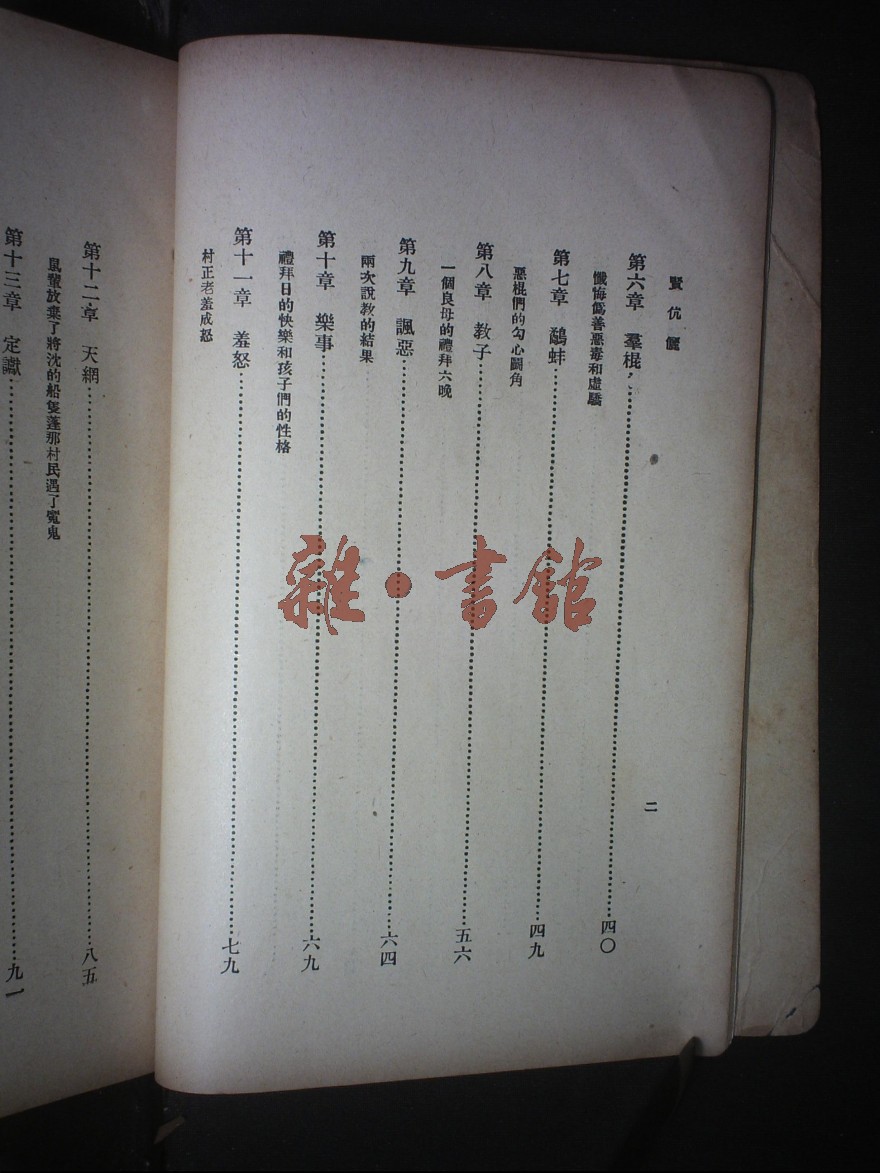 賢伉儷
第六章 羣棍……四〇
懺悔僞善惡毒和虛驕
第七章 鷸蚌……四九
惡棍們的勾心鬭角
第八章 教子……五六
一個良母的禮拜六晚
第九章 諷惡……六四
兩次說教的結果
第十章 樂事……六九
禮拜日的快樂和孩子們的性格
第十一章 羞怒……七九
村正老羞成怒
二
第十二章 天網……八五
鼠輩放棄了將沈的船隻蓬那村民遇了寃鬼
第十三章 定讞……九一
雜·書館